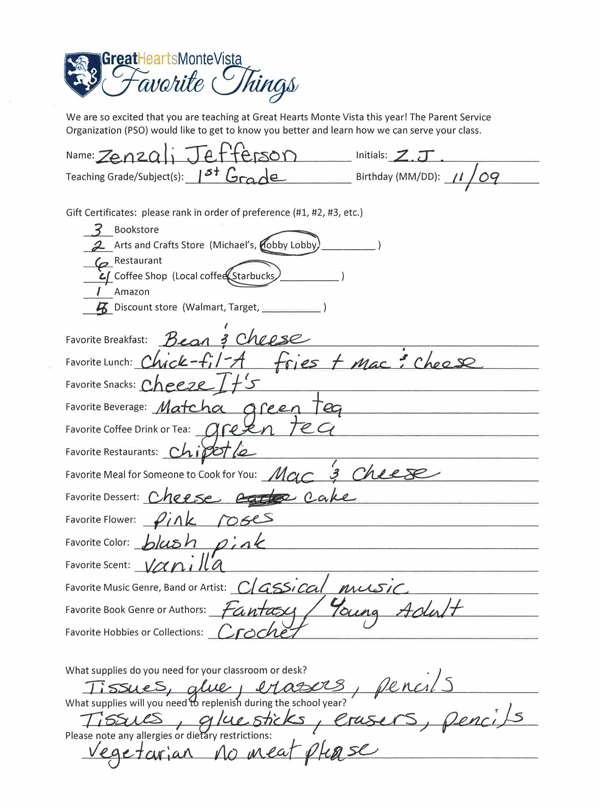 GreatHeartsMonteVista
Favorite Things
We are so excited that you are teaching at Great Hearts Monte Vista this year! The Parent Service
Organization (PSO) would like to get to know you better and learn how we can serve your class.
Name: Zenzali Jefferson Initials: Z.J.
Teaching Grade/Subject(s): 1st Grade Birthday (MM/DD): 11/09
Gift Certificates: please rank in order of preference (#1, #2, #3, etc.)
3 Bookstore
2 Arts and Crafts Store (Michael's, Hobby Lobby, __________ )
6 Restaurant
4 Coffee Shop (Local coffee, Starbucks, __________ )
1 Amazon
5 Discount store (Walmart, Target, __________ )
Favorite Breakfast: Bean & cheese
Favorite Lunch: Chick-fil-A fries + mac & cheese
Favorite Snacks: Cheeze It's
Favorite Beverage: Matcha green tea
Favorite Coffee Drink or Tea: green tea
Favorite Restaurants: Chipotle
Favorite Meal for Someone to Cook for You: Mac & cheese
Favorite Dessert: Cheese cake
Favorite Flower: pink roses
Favorite Color: blush pink
Favorite Scent: vanilla
Favorite Music Genre, Band or Artist: Classical music
Favorite Book Genre or Authors: Fantasy / Young Adult
Favorite Hobbies or Collections: Crochet
What supplies do you need for your classroom or desk?
Tissues, glue, erasers, pencils
What supplies will you need to replenish during the school year?
Tissues, glue sticks, erasers, pencils
Please note any allergies or dietary restrictions:
Vegetarian no meat please